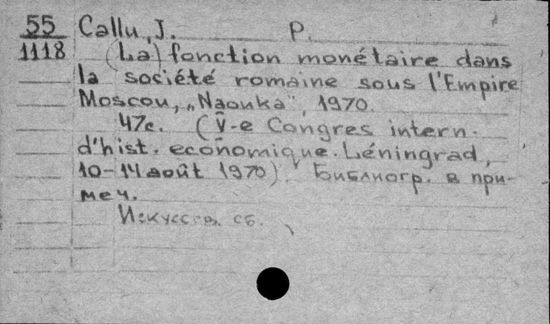 55 Callu, J. P.
1118 (La) fonction monétaire dans
la société romaine sous l'Empire
Moscou, „Naouka", 1970.
47с. (V-e Congres intern.
d'hist. economique. Léningrad,
10-14 août 1970). Библиогр. в при-
меч.
Искусств. сб.